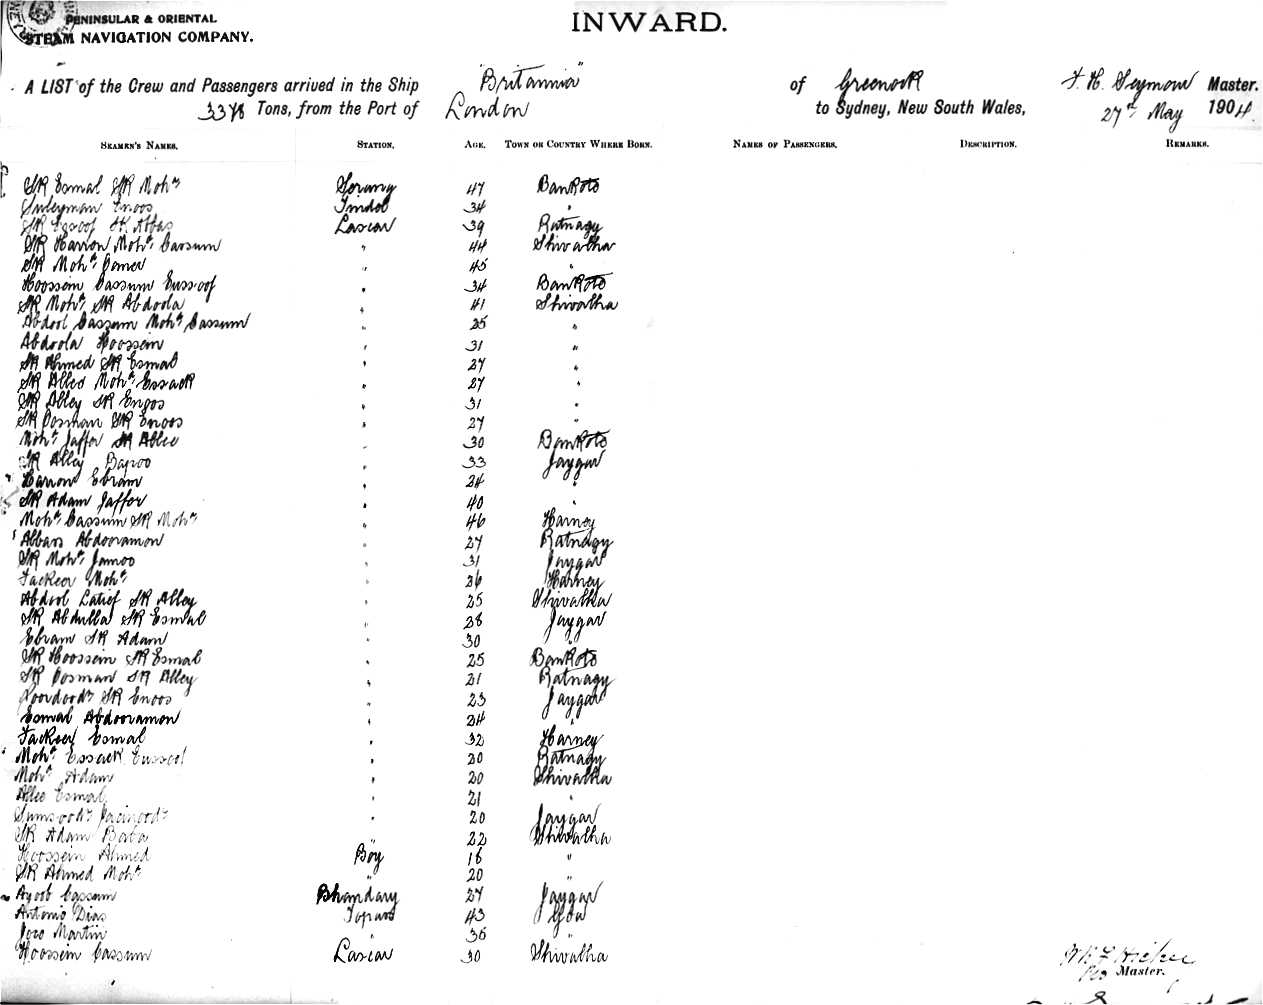 PENINSULAR & ORIENTAL
STEAM NAVIGATION COMPANY.
INWARD.
A LIST of the Crew and Passengers arrived in the Ship "Britannia" of Greenock F. H. Seymour Master.
Tons, from the Port of London to Sydney, New South Wales, 27th May 1904.
SEAMEN'S NAMES. STATION. AGE. TOWN OR COUNTRY WHERE BORN. NAMES OF PASSENGERS. DESCRIPTION. REMARKS.
SK Esmal SK Mohd Serang 47 Bankote
Suleyman Enoos Tindal 34 "
SK Essoof SK Abbas Lascar 39 Ratnagy
SK Harron Mohd Cassum " 44 Shivalha
SK Mohd Oomer " 45 "
Hoossein Cassum Eussoof " 34 Bankote
SK Mohd SK Abdoola " 41 Shivalha
Abdool Cassum Mohd Cassum " 25 "
Abdoola Hoossein " 31 "
SK Ahmed SK Esmal " 27 "
SK Allee Mohd Essack " 27 "
SK Alley SK Enoos " 31 "
SK Oosman SK Enoos " 27 "
Mohd Jaffer SK Allee " 30 Bankote
SK Alley Bapoo " 33 Jaygar
Harron Ebram " 24 "
SK Adam Jaffer " 40 "
Mohd Cassum SK Mohd " 46 Harney
Abbas Abdooramon " 27 Ratnagy
SK Mohd " 31 Jaygar
Fackeer Mohd " 26 Harney
Abdool Latief SK Alley " 25 Shivalha
SK Abdulla SK Esmal " 28 Jaygar
Ebram SK Adam " 30 "
SK Hoossein SK Esmal " 25 Bankote
SK Oosman SK Alley " 21 Ratnagy
SK Enoos " 23 Jaygar
Esmal Abdooramon " 24 "
Fackeer Esmal " 32 Harney
Mohd Essack " 20 Ratnagy
Mohd Adam " 20 Shivalha
Allee Esmal " 21 "
" 20 Jaygar
SK Adam Baba " 22 Shivalha
Hoossein Ahmed Boy 18 "
SK Ahmed Mohd " 20 "
Ayoob Cassum Bhandary 27 Jaygar
Antonio Dias Topass 43 Goa
Joao Martin " 36 "
Hoossein Cassum Lascar 30 Shivalha
Master.